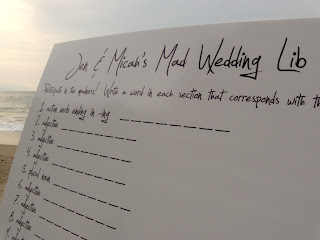 Jen & Micah's Mad Wedding Lib
Participate in the madness! Write a word in each section that corresponds with th
1. action verb ending in -ing
2. adjective
3. adjective
4. adjective
5. plural noun
6. adjective
7. adjective
8. adjective